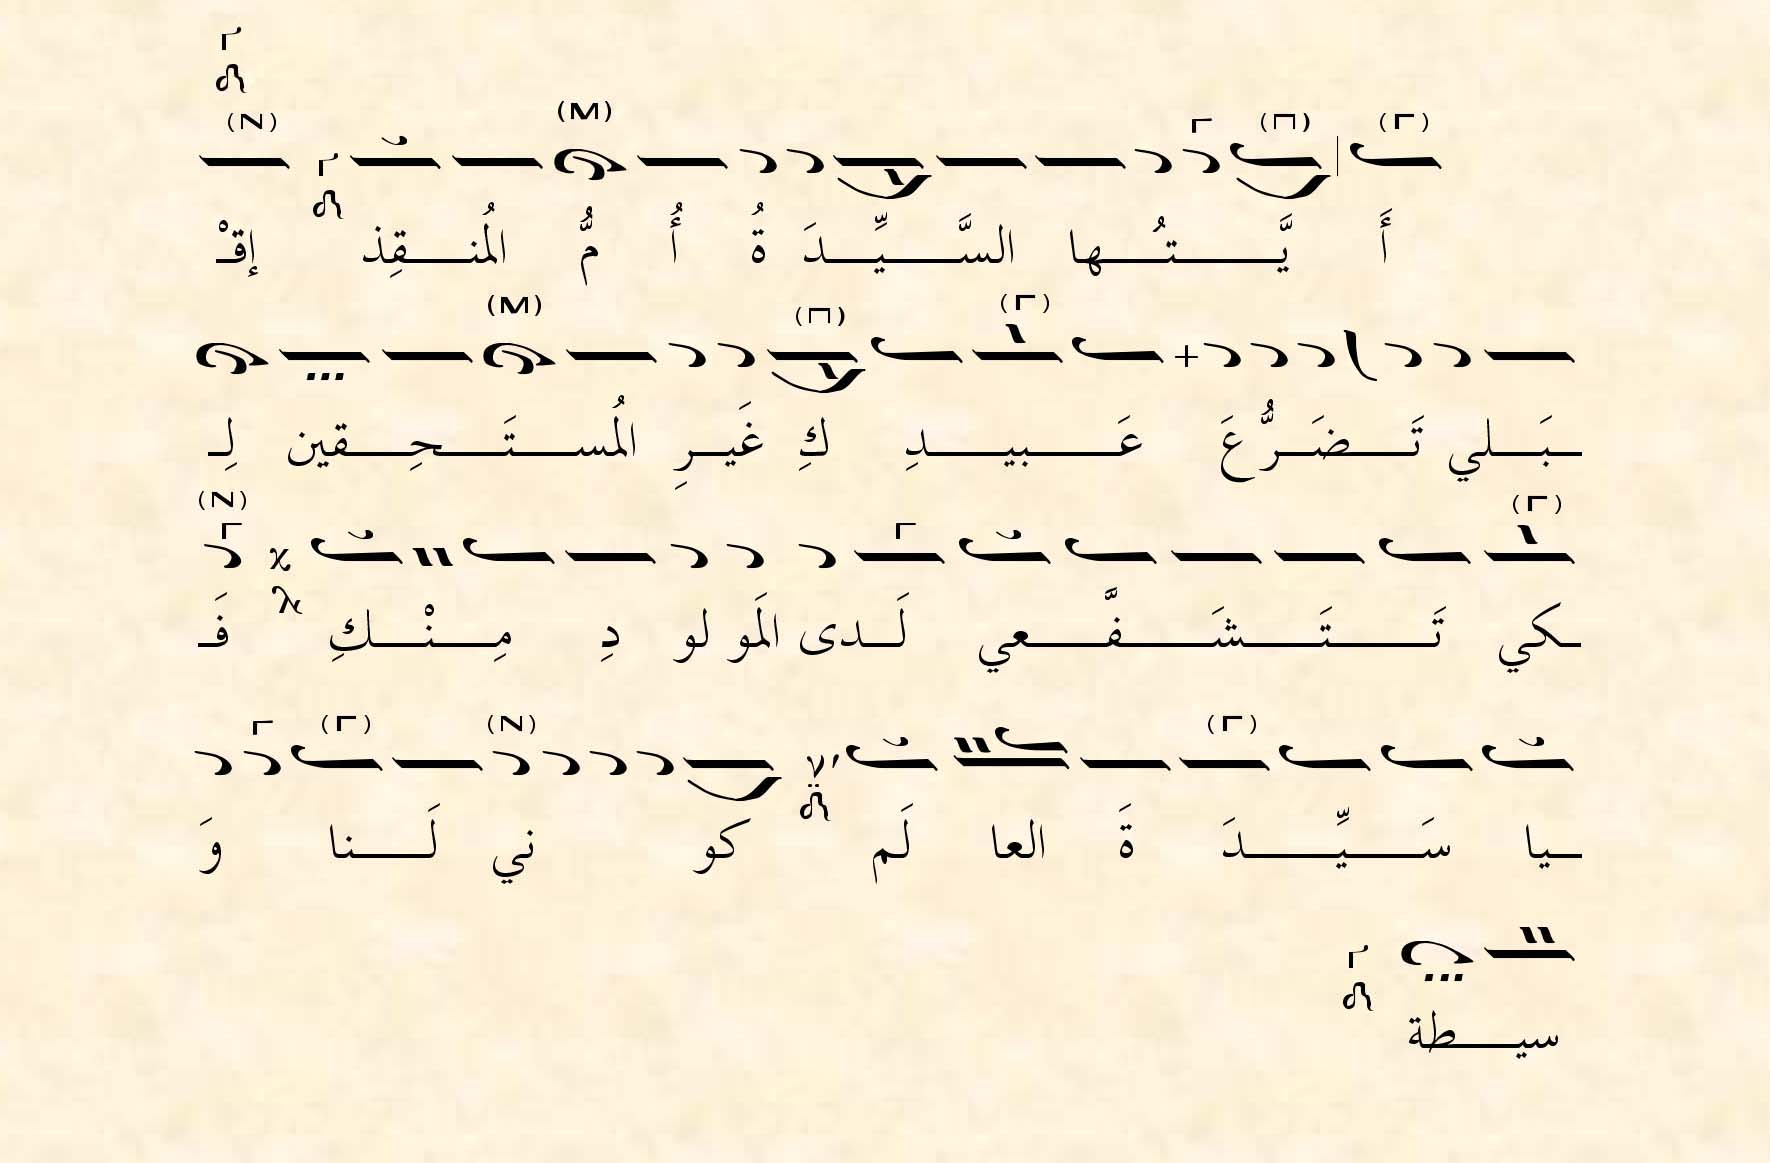 أَ يَّـــتُـــها السَّـــيِّـــدَ ةُ أُ مُّ المُنـــقِذ إقْـ
ـبَـــلي تَـــضَـــرُّعَ عَـــبيـــدِ كِ غَيـــرِ المُستَـــحِـــقين لِـ
ـكي تَـــتَـــشَـــفَّـــعي لَـــدى المَو لو دِ مِـــنْـــكِ فَـ
ـيا سَـــيِّـــدَ ةَ العا لَم كو ني لَـــنا وَ
سيـــطة